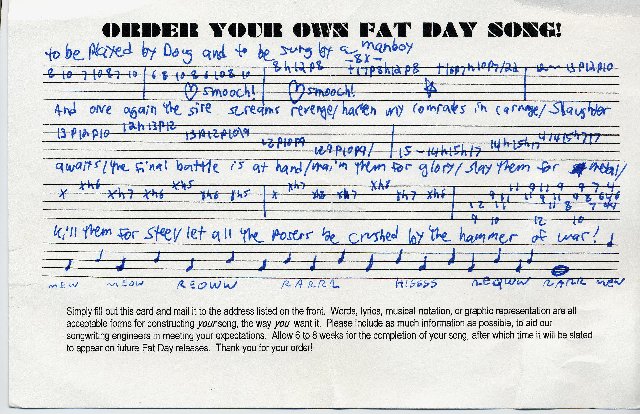 ORDER YOUR OWN FAT DAY SONG!
to be played by Doug and to be sung by a manboy
-8x-
8 10 7 10 8 7 10 6 8 10 8 6 10 8 10 8h12p8 12 13p12p10
smooch! smooch!
And once again the sire screams revenge/ harken my comrades in carnage/ Slaughter
13p12p10 12h13p12 13p12p10p9 12p10p9
12p10p9/ 15-14h15h17 14h15h17
awaits/ the final battle is at hand/ maim them for glory/ slay them for metal/
x xh6 xh7 xh6 xh5 xh6 xh5 x xh7 xh8 xh7 xh6 xh7 xh6 11 9 11 9 9 7 4
12 11 11 8
9 10 12 10
Kill them for steel/ let all the posers be crushed by the hammer of war!
MEW MEOW REOWW RARRR HISSSS REOWW RARR MEW
Simply fill out this card and mail it to the address listed on the front. Words, lyrics, musical notation, or graphic representation are all
acceptable forms for constructing your song, the way you want it. Please include as much information as possible, to aid our
songwriting engineers in meeting your expectations. Allow 6 to 8 weeks for the completion of your song, after which time it will be slated
to appear on future Fat Day releases. Thank you for your order!